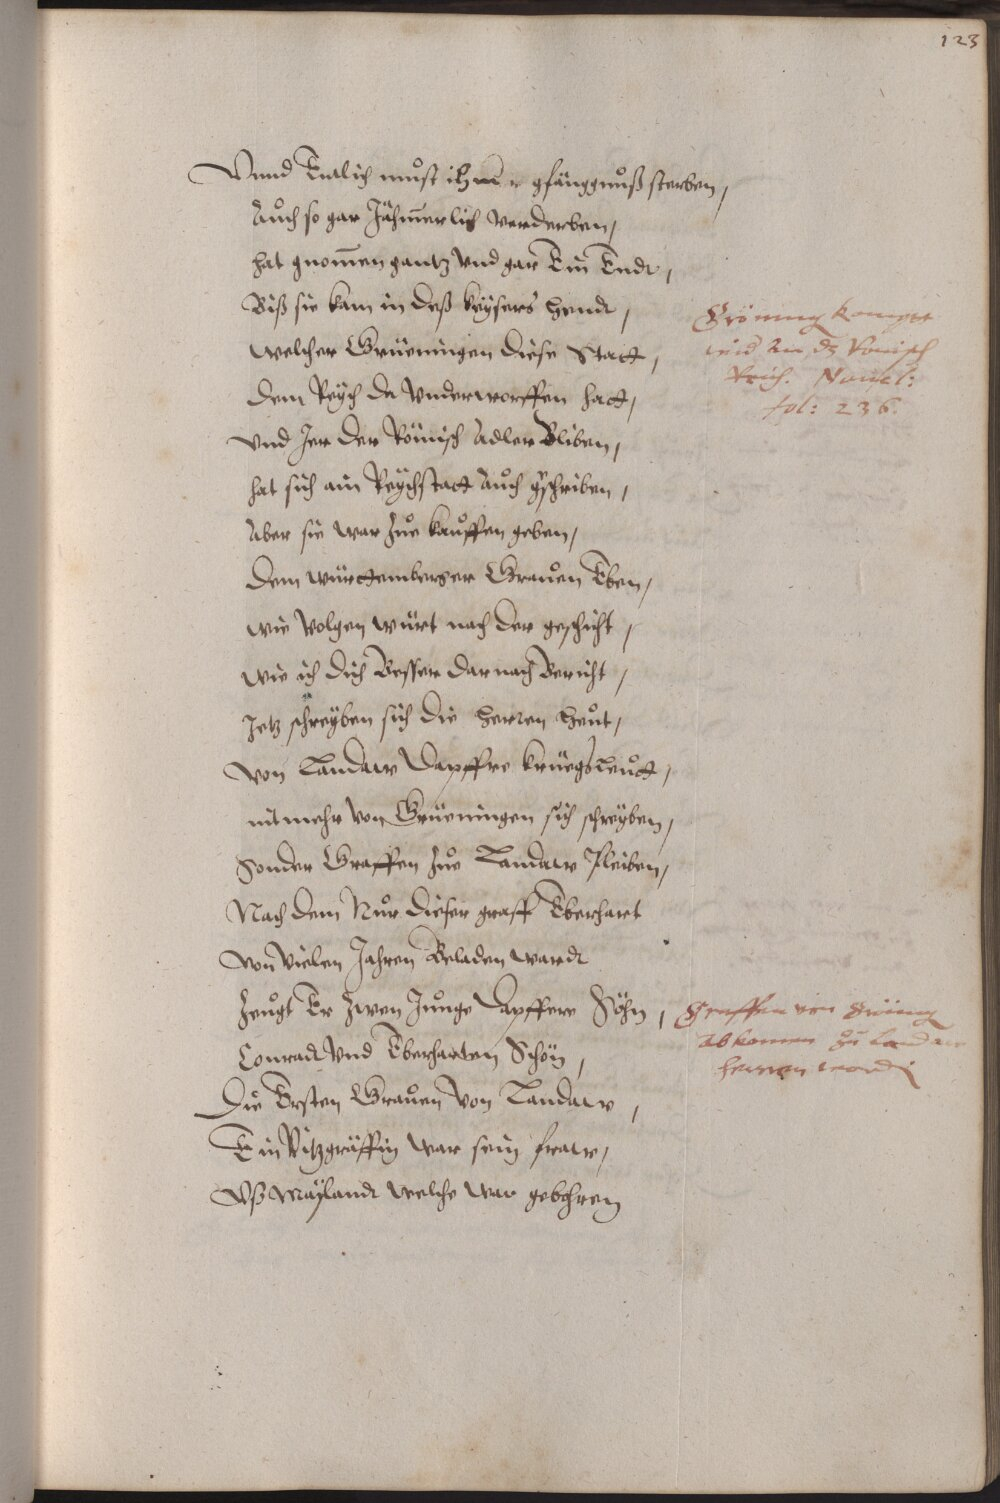 123
Vnnd Entlich muͦst ihnn gfänggnuͦß sterben,
Auͦch so gar Jähmerlich verderben,
hat gnom̄en gantz vnd gar Ein Endt,
Biß sie kam in deß keÿsers hendt,
welcher Grüeningen diese Statt,
dem Reÿch da vnderworffen hatt,
vnd Jer der Römisch Adler Bliben,
hat sich ain Reÿchstatt Auͦch gschriben,
Aber sie war Zuͦe kauͦffen geben,
dem württemberger Grauͦen Eben,
wie Volgen würt nach der geschicht,
wie ich dich Besser darnach Bericht,
Jetz schreÿben sich die herren heuͦt,
von Landaw dapffre kriegsleuͦtt,
nit mehr von Grüeningen sich schreÿben,
Sonder Graffen Zuͦe Landaw Bleiben,
Nach dem Nuͦr dieser graff Eberhart
von vielen Jahren Beladen wardt
Zeuͦgt Er Zwen Juͦnge dapffere Söhn,
Conradt vnd Eberharten Schön,
die Ersten Grauͦen von Landaw,
Ein Vitzgräffin war sein fraw,
Vß Maÿlandt welche war gebohren
Gröning kompt
wid an dz Römisch
Reich. Naucl:
fol: 236.
Graffen von Grüning
abkomen Zu Landaw
herren word